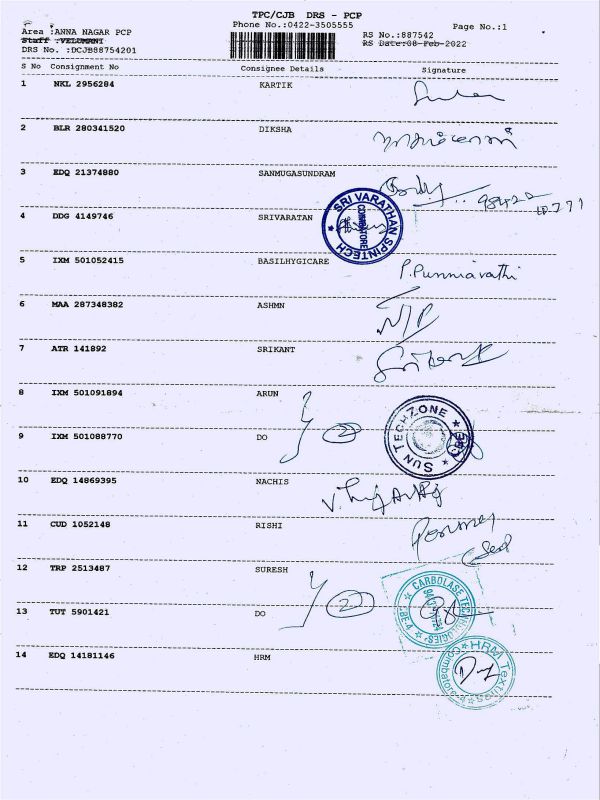 TPC/CJB DRS - PCP
Area :ANNA NAGAR PCP Phone No.:0422-3505555 Page No.:1
Staff :VELUMANI RS No.:887542
DRS No. :DCJB88754201 RS Date:08-Feb-2022
S No Consignment No Consignee Details Signature
1 NKL 2956284 KARTIK
2 BLR 280341520 DIKSHA
3 EDQ 21374880 SANMUGASUNDRAM
4 DDG 4149746 SRIVARATAN SRI VARATHAN SPINTECH COIMBATORE
5 IXM 501052415 BASILHYGICARE P.Punniavathi
6 MAA 287348382 ASHMN
7 ATR 141892 SRIKANT
8 IXM 501091894 ARUN
9 IXM 501088770 DO 2 SUN TECHZONE CBE
10 EDQ 14869395 NACHIS
11 CUD 1052148 RISHI
12 TRP 2513487 SURESH
13 TUT 5901421 DO 2 CARBOLASE TECHNOLOGIES
14 EDQ 14181146 HRM HRM Textiles Coimbatore